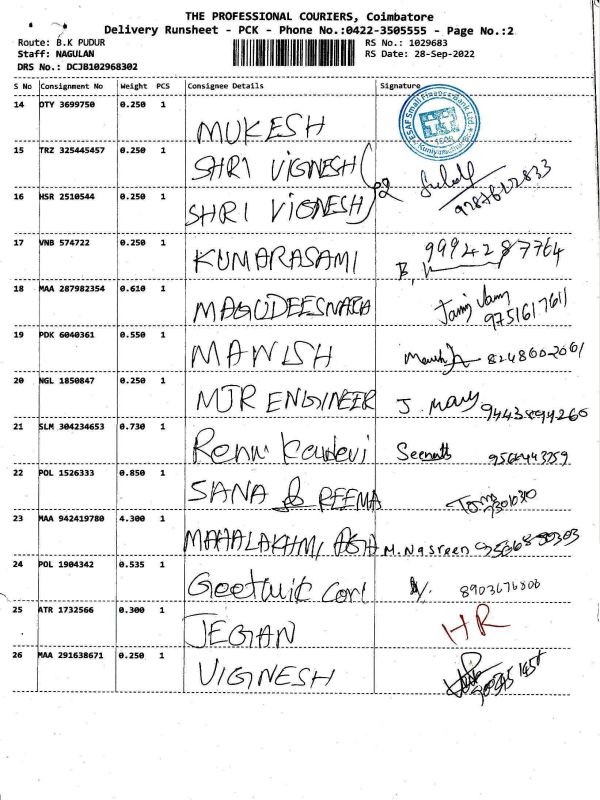 THE PROFESSIONAL COURIERS, Coimbatore
Delivery Runsheet - PCK - Phone No.:0422-3505555 - Page No.:2
Route: B.K PUDUR RS No.: 1029683
Staff: NAGULAN RS Date: 28-Sep-2022
DRS No.: DCJB102968302
S No Consignment No Weight PCS Consignee Details Signature
14 DTY 3699750 0.250 1 MUKESH ESAF Small Finance Bank Ltd.
15 TRZ 325445457 0.250 1 SHRI VIGNESH
16 HSR 2510544 0.250 1 SHRI VIGNESH
17 VNB 574722 0.250 1 KUMARASAMI 9994287764
18 MAA 287982354 0.610 1 9751617611
19 PDK 6040361 0.550 1 MANISH 8248602061
20 NGL 1850847 0.250 1 MJR ENGINEER J. Mary 9443894266
21 SLM 304234653 0.730 1 Renu
22 POL 1526333 0.850 1 SANA REEMA
23 MAA 942419780 4.300 1 MAHALAKHMI M. Nasreen
24 POL 1904342 0.535 1 8903676806
25 ATR 1732566 0.300 1 JEGAN HR
26 MAA 291638671 0.250 1 VIGNESH